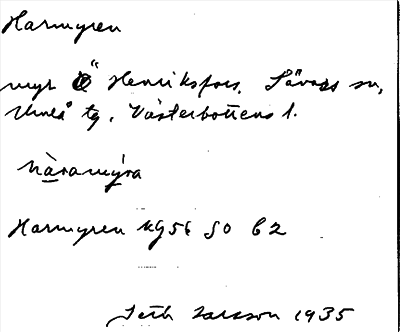 Harmyren
myr Ö Henriksfors, Sävars sn,
Umeå tg, Västerbottens l.
hàramýra
Harmyren kg56 SO b2
Seth Larsson 1935